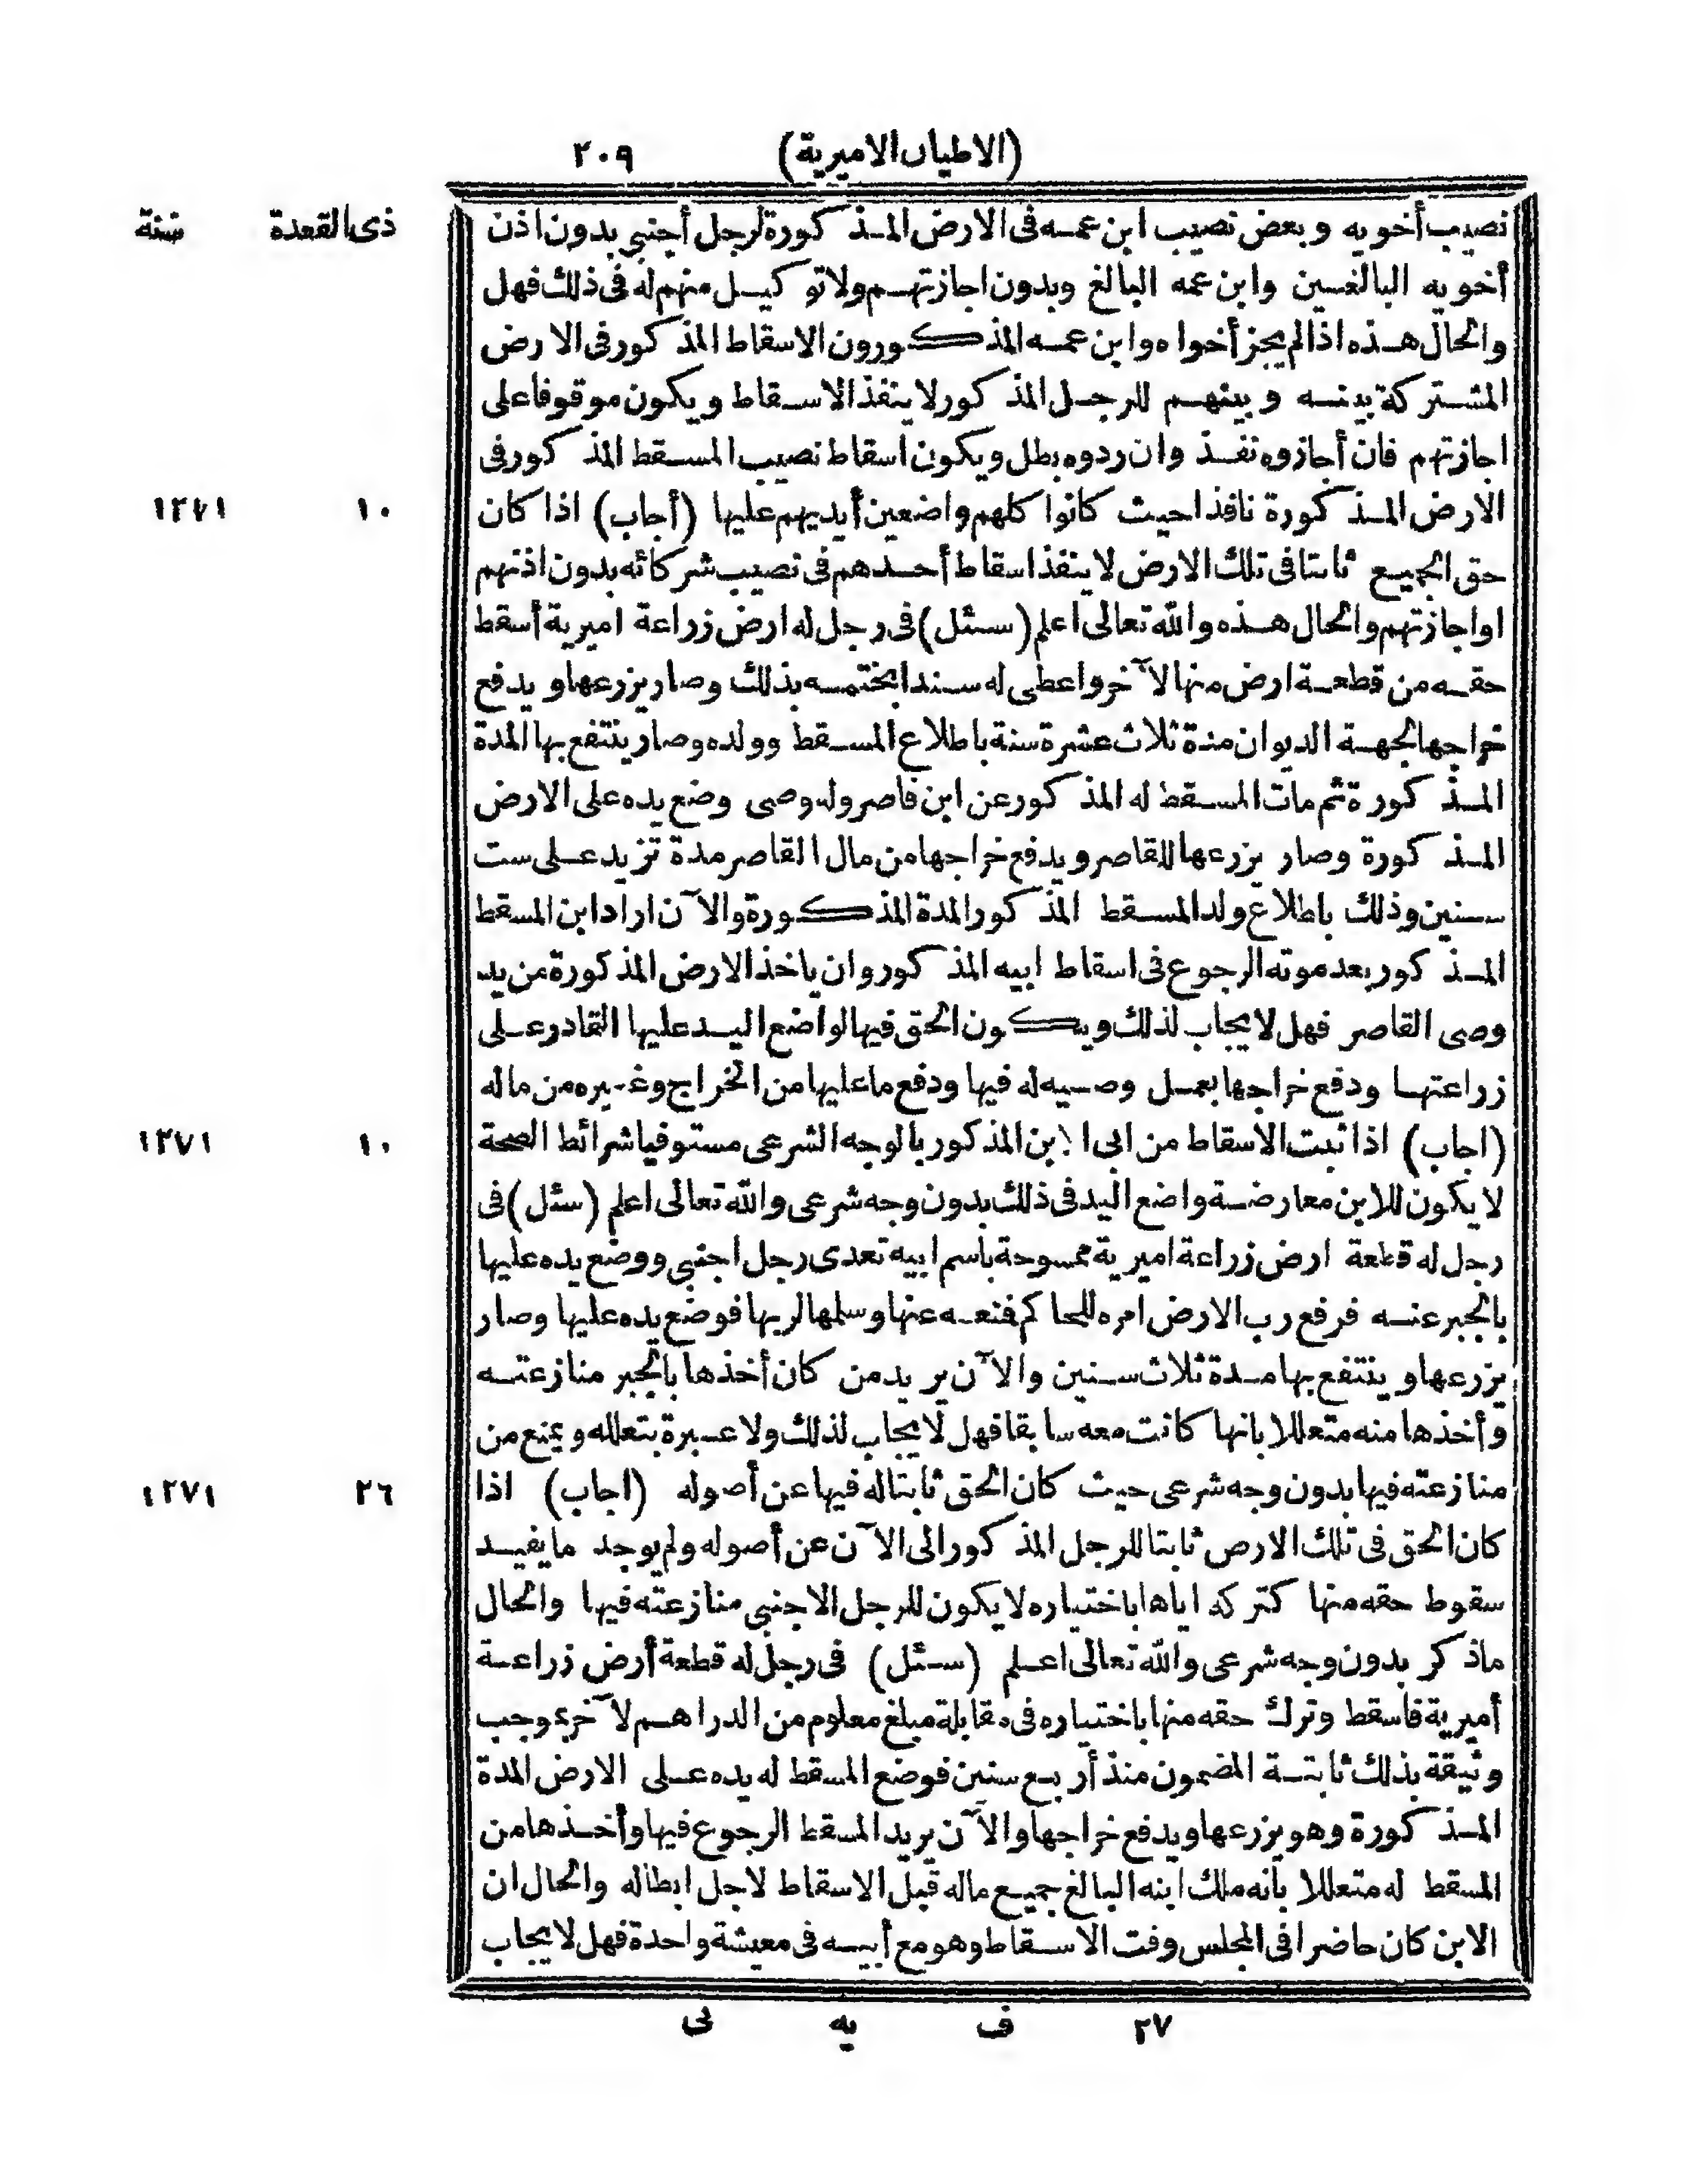 (الاطيان الاميرية) ٢٠٩
ذى القعدة سنة
نصيب أخويه وبعض نصيب ابن عمه فى الارض المذكورة لرجل أجنبى بدون اذن
أخويه البالغين وابن عمه البالغ وبدون اجازتهم ولا توكيل منهم له فى ذلك فهل
والحال هذه اذا لم يجز أخواه وابن عمه المذكورون الاسقاط المذكور فى الارض
المشتركة بينه وبينهم للرجل المذكور لا ينفذ الاسقاط ويكون موقوفا على
اجازتهم فان أجازوه نفذ وان ردوه بطل ويكون اسقاط نصيب المسقط المذكور فى
الارض المذكورة نافذا حيث كانوا كلهم واضعين أيديهم عليها (أجاب) اذا كان ١٠ ١٢٧١
حق الجميع ثابتا فى تلك الارض لا ينفذ اسقاط أحدهم فى نصيب شركائه بدون اذنهم
او اجازتهم والحال هذه والله تعالى اعلم (سئل) فى رجل له ارض زراعة اميرية أسقط
حقه من قطعة ارض منها لآخر واعطى له سندا بختمه بذلك وصار يزرعها ويدفع
خراجها لجهة الديوان مدة ثلاث عشرة سنة باطلاع المسقط وولده وصار ينتفع بها المدة
المذكورة ثم مات المسقط له المذكور عن ابن قاصر وله وصى وضع يده على الارض
المذكورة وصار يزرعها للقاصر ويدفع خراجها من مال القاصر مدة تزيد على ست
سنين وذلك باطلاع ولد المسقط المذكور المدة المذكورة والآن اراد ابن المسقط
المذكور بعد موته الرجوع فى اسقاط ابيه المذكور وان ياخذ الارض المذكورة من يد
وصى القاصر فهل لا يجاب لذلك ويكون الحق فيها لواضع اليد عليها القادر على
زراعتها ودفع خراجها بعمل وصيه له فيها ودفع ما عليها من الخراج وغيره من ماله
(اجاب) اذا ثبت الاسقاط من ابى الابن المذكور بالوجه الشرعى مستوفيا شرائط الصحة ١٠ ١٢٧١
لا يكون للابن معارضة واضع اليد فى ذلك بدون وجه شرعى والله تعالى اعلم (سئل) فى
رجل له قطعة ارض زراعة اميرية ممسوحة باسم ابيه تعدى رجل اجنبى ووضع يده عليها
بالجبر عنه فرفع رب الارض امره للحاكم فمنعه عنها وسلمها لربها فوضع يده عليها وصار
يزرعها وينتفع بها مدة ثلاث سنين والآن يريد من كان أخذها بالجبر منازعته
وأخذها منه متعللا بانها كانت معه سابقا فهل لا يجاب لذلك ولا عبرة بتعلله ويمنع من
منازعته فيها بدون وجه شرعى حيث كان الحق ثابتا له فيها عن أصوله (اجاب) اذا ٢٦ ١٢٧١
كان الحق فى تلك الارض ثابتا للرجل المذكور الى الآن عن أصوله ولم يوجد ما يفيد
سقوط حقه منها كتركه اياها باختياره لا يكون للرجل الاجنبى منازعته فيها والحال
ماذكر بدون وجه شرعى والله تعالى اعلم (سئل) فى رجل له قطعة أرض زراعة
أميرية فاسقط وترك حقه منها باختياره فى مقابلة مبلغ معلوم من الدراهم لآخر بموجب
وثيقة بذلك ثابتة المضمون منذ أربع سنين فوضع المسقط له يده على الارض المدة
المذكورة وهو يزرعها ويدفع خراجها والآن يريد المسقط الرجوع فيها وأخذها من
المسقط له متعللا بأنه ملك ابنه البالغ جميع ماله قبل الاسقاط لاجل ابطاله والحال ان
الابن كان حاضرا فى المجلس وقت الاسقاط وهو مع أبيه فى معيشة واحدة فهل لا يجاب
٢٧ ف يه نى